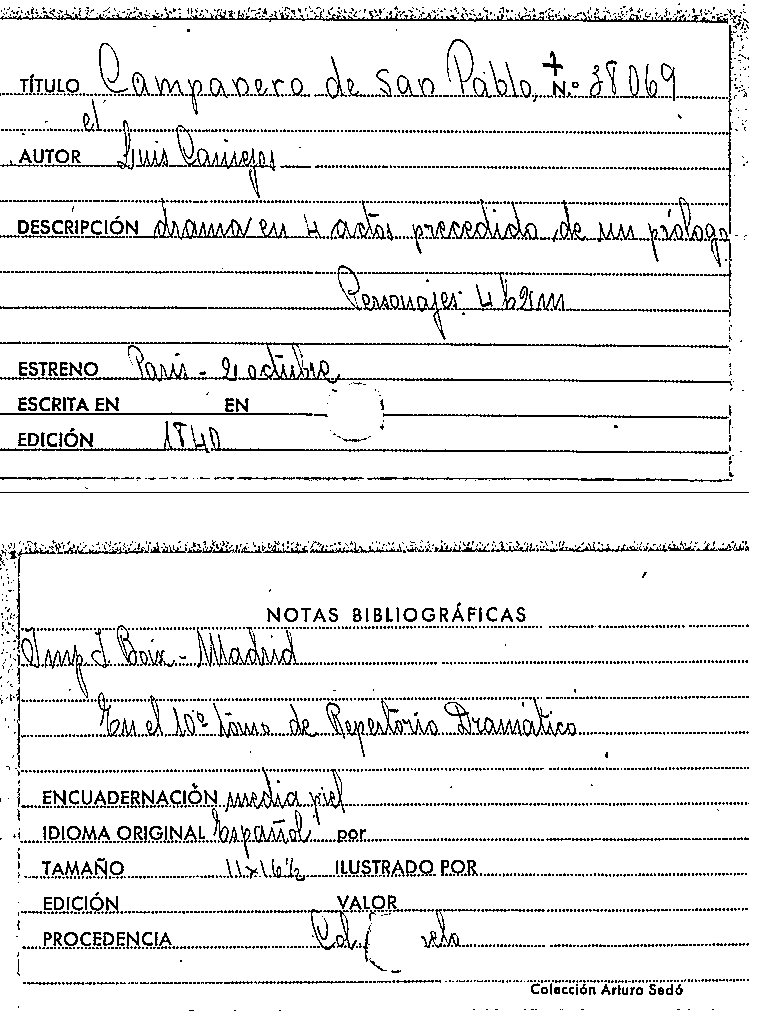 TÍTULO Campanero de San Pablo, N.º 38069
el
AUTOR Luis
DESCRIPCIÓN drama en 4 actos precedido de un prólogo
Personajes: 4 h 2 m
ESTRENO Paris - 2 octubre
ESCRITA EN EN
EDICIÓN 1840
NOTAS BIBLIOGRÁFICAS
Imp J Boix - Madrid
En el 10º tomo de Repertorio Dramático
ENCUADERNACIÓN media piel
IDIOMA ORIGINAL Español por
TAMAÑO 11x16½ ILUSTRADO POR
EDICIÓN VALOR
PROCEDENCIA Col.
Colección Arturo Sedó